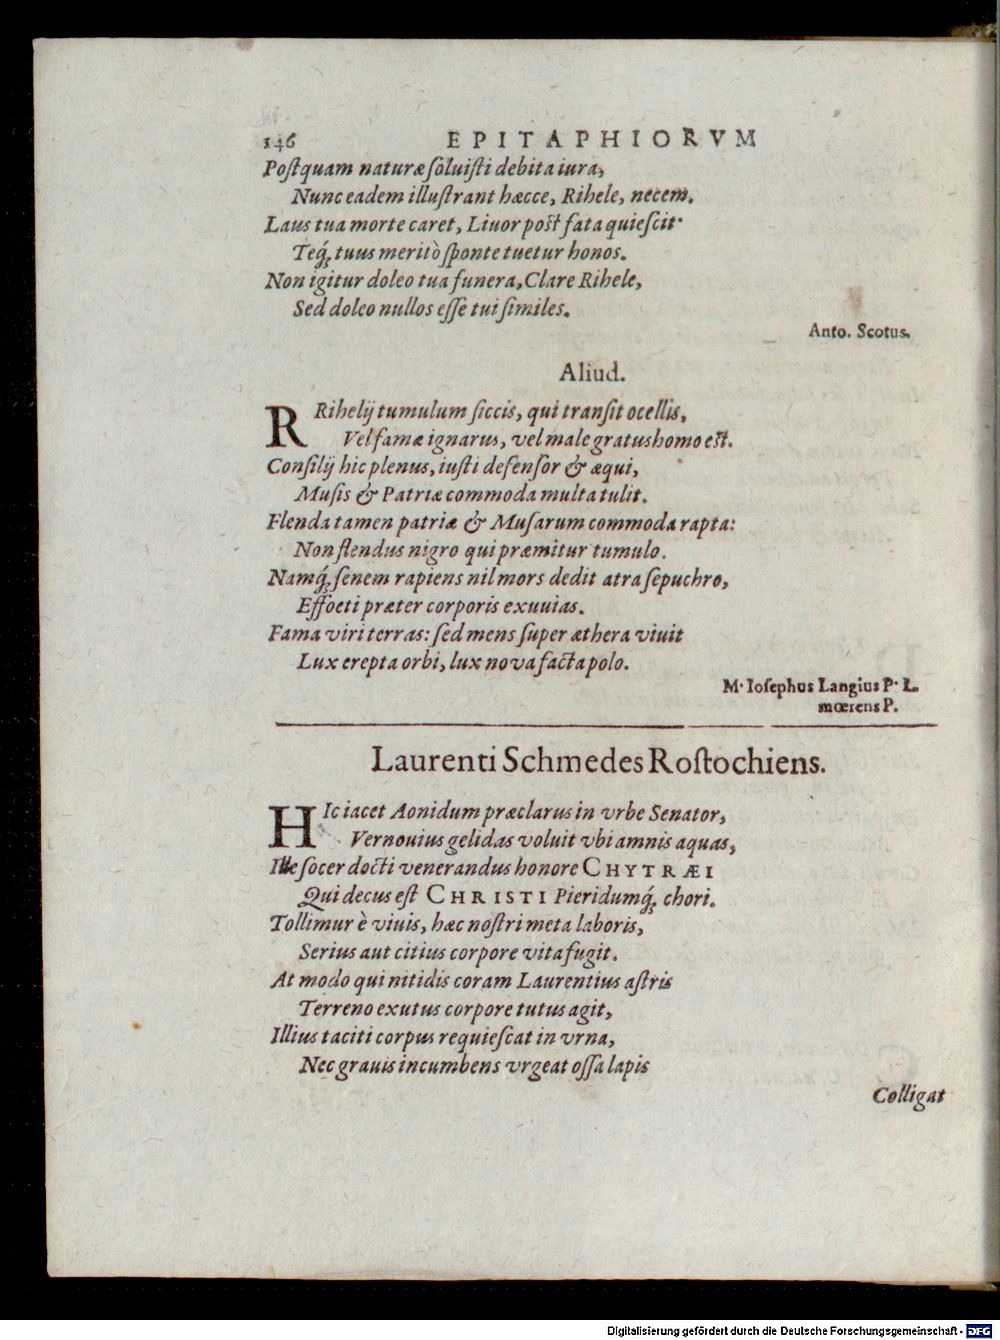 146 EPITAPHIORVM
Postquam naturæ soluisti debita iura,
Nunc eadem illustrant hæcce, Rihele, necem.
Laus tua morte caret, Liuor post fata quiescit·
Teq́; tuus meritò sponte tuetur honos.
Non igitur doleo tua funera, Clare Rihele,
Sed doleo nullos esse tui similes.
Anto. Scotus.
Aliud.
R Rihelij tumulum siccis, qui transit ocellis,
Vel famæ ignarus, vel male gratus homo est.
Consilij hic plenus, iusti defensor & æqui,
Musis & Patriæ commoda multa tulit.
Flenda tamen patriæ & Musarum commoda rapta:
Non flendus nigro qui præmitur tumulo.
Namq́; senem rapiens nil mors dedit atra sepuchro,
Effoeti præter corporis exuuias.
Fama viri terras: sed mens super æthera viuit
Lux erepta orbi, lux nova facta polo.
M· Iosephus Langius P· L.
mœrens P.
Laurenti Schmedes Rostochiens.
HIc iacet Aonidum præclarus in vrbe Senator,
Vernouius gelidas voluit vbi amnis aquas,
Ille socer docti venerandus honore CHYTRÆI
Qui decus est CHRISTI Pieridumq́; chori.
Tollimur è viuis, hæc nostri meta laboris,
Serius aut citius corpore vita fugit.
At modo qui nitidis coram Laurentius astris
Terreno exutus corpore tutus agit,
Illius taciti corpus requiescat in vrna,
Nec grauis incumbens vrgeat ossa lapis
Colligat
Digitalisierung gefördert durch die Deutsche Forschungsgemeinschaft - DFG